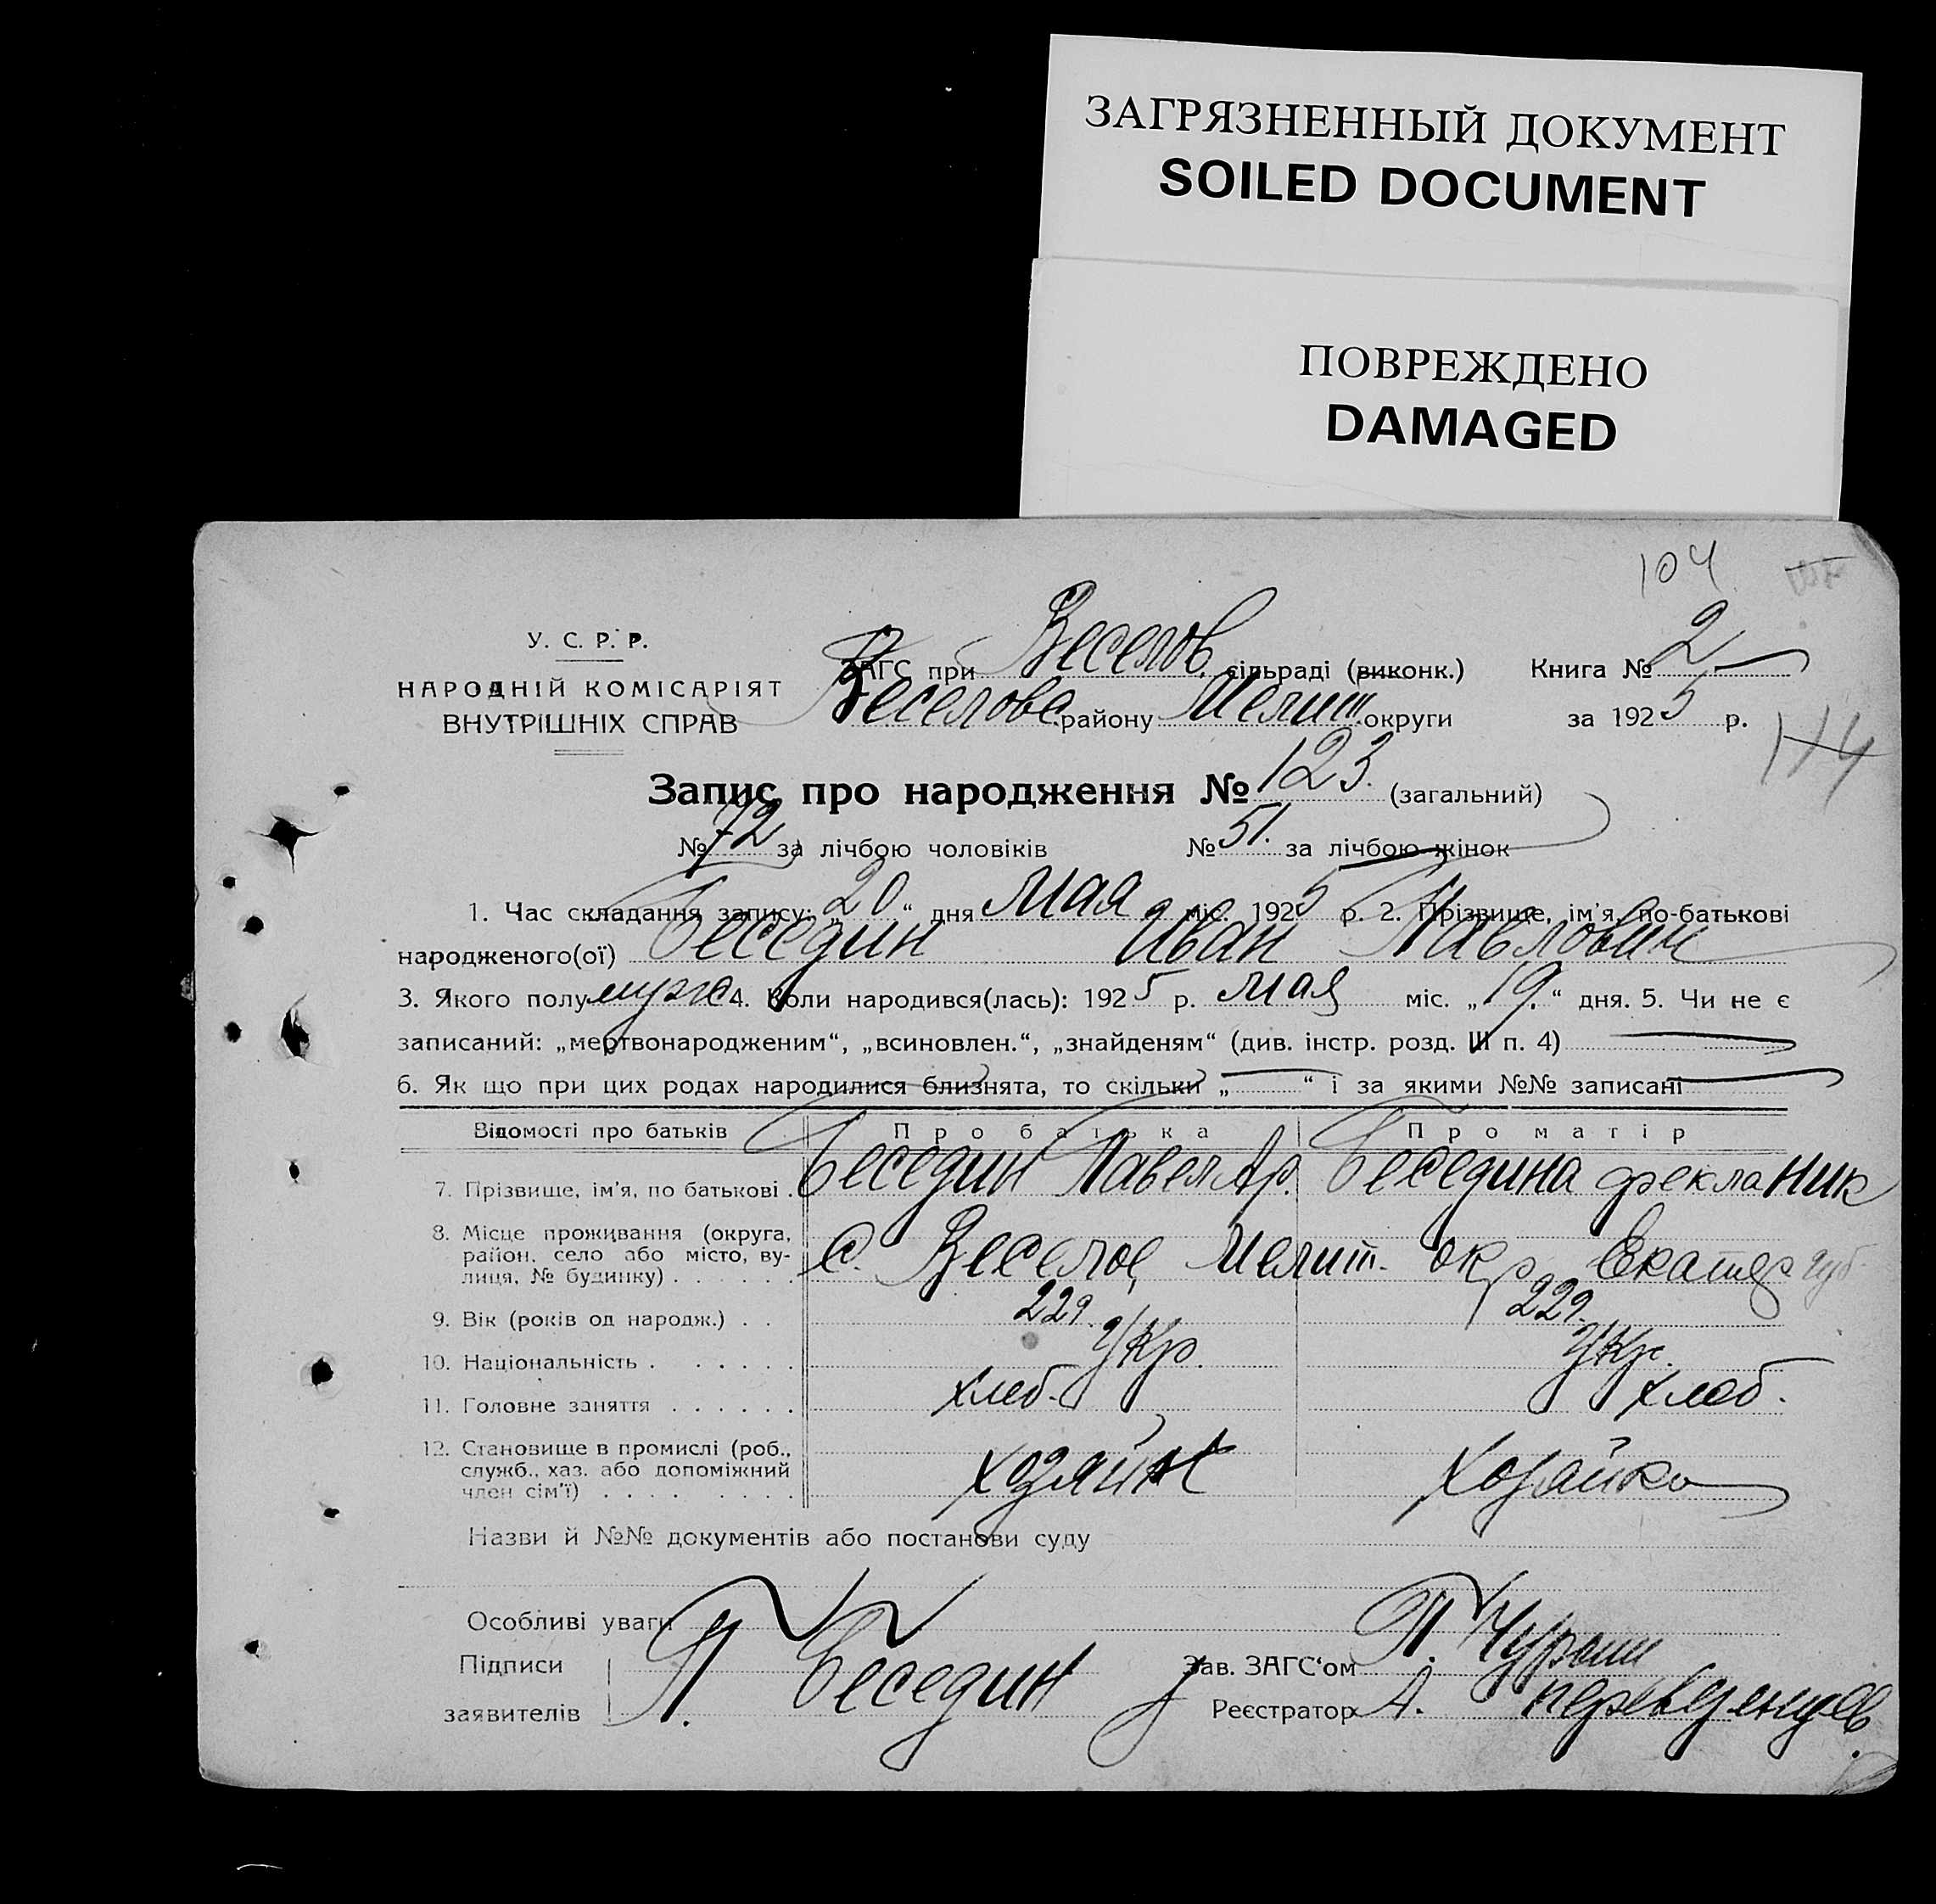 ЗАГРЯЗНЕННЫЙ ДОКУМЕНТ
SOILED DOCUMENT
ПОВРЕЖДЕНО
DAMAGED
104
У. С. Р. Р.
НАРОДНІЙ КОМІСАРІЯТ
ВНУТРІШНІХ СПРАВ
ЗАГС при Веселов. сільраді (виконк.) Книга № 2
Веселовс. району Мелит. округи за 1925 р.
114
Запис про народження № 123. (загальний)
№ 72 за лічбою чоловіків № 51. за лічбою жінок
1. Час складання запису: „20“ дня Мая міс. 1925 р. 2. Прізвище, ім'я, по-батькові
народженого(ої) Беседин Иван Павлович
3. Якого полу муж 4. Коли народився(лась): 1925 р. Мая міс. „19.“ дня. 5. Чи не є
записаний: „мертвонародженим“, „всиновлен.“, „знайденям“ (див. інстр. розд. III п. 4)
6. Як що при цих родах народилися близнята, то скільки „ “ і за якими №№ записані
Відомості про батьків Про батька Про матір
7. Прізвище, ім'я, по батькові . Беседин Павел Ар. Беседина Фекла Ник
8. Місце проживання (округа, район, село або місто, вулиця, № будинку) . . . . . . С. Веселое, Мелит. окр Екатер губ.
9. Вік (років од народж.) . . 22 г. 22 г.
10. Національність . . . . . . Укр. Укр.
11. Головне заняття . . . . . . хлеб. хлеб.
12. Становище в промислі (роб., служб., хаз. або допоміжний член сім'ї) . . . . . . . . хозяин хозяйка
Назви й №№ документів або постанови суду
Особливі уваги
Підписи заявителів П. Беседин
Зав. ЗАГС‘ом П.
Реєстратор А. Переведенцев